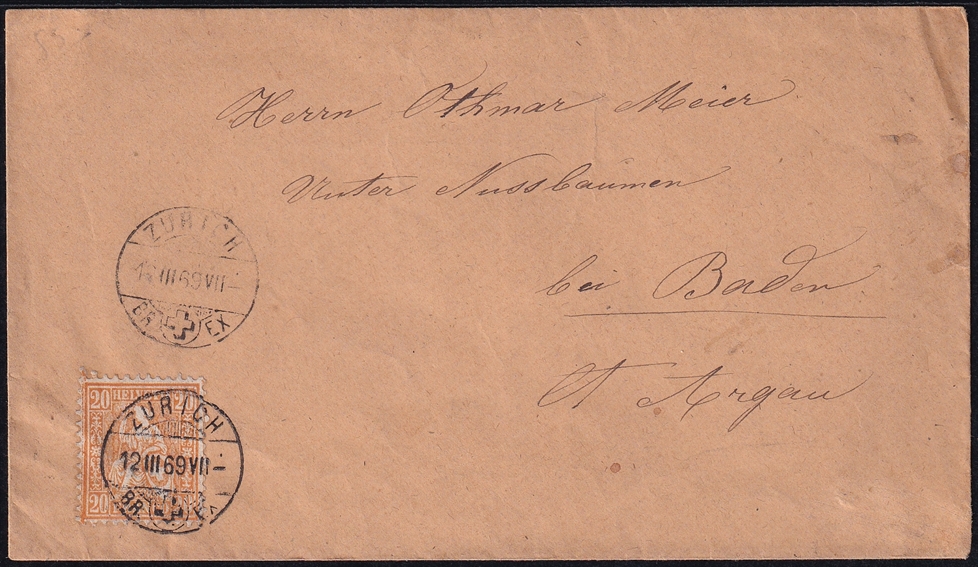 Herrn Othmar Meier
Unter Nussbaumen
bei Baden
Ct Argau
ZURICH
12 III 69 VII -
BR. EX
20 HE
20
ZURICH
12 III 69 VII -
BR. EX
20